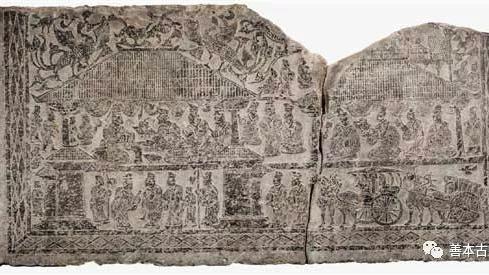 善本古